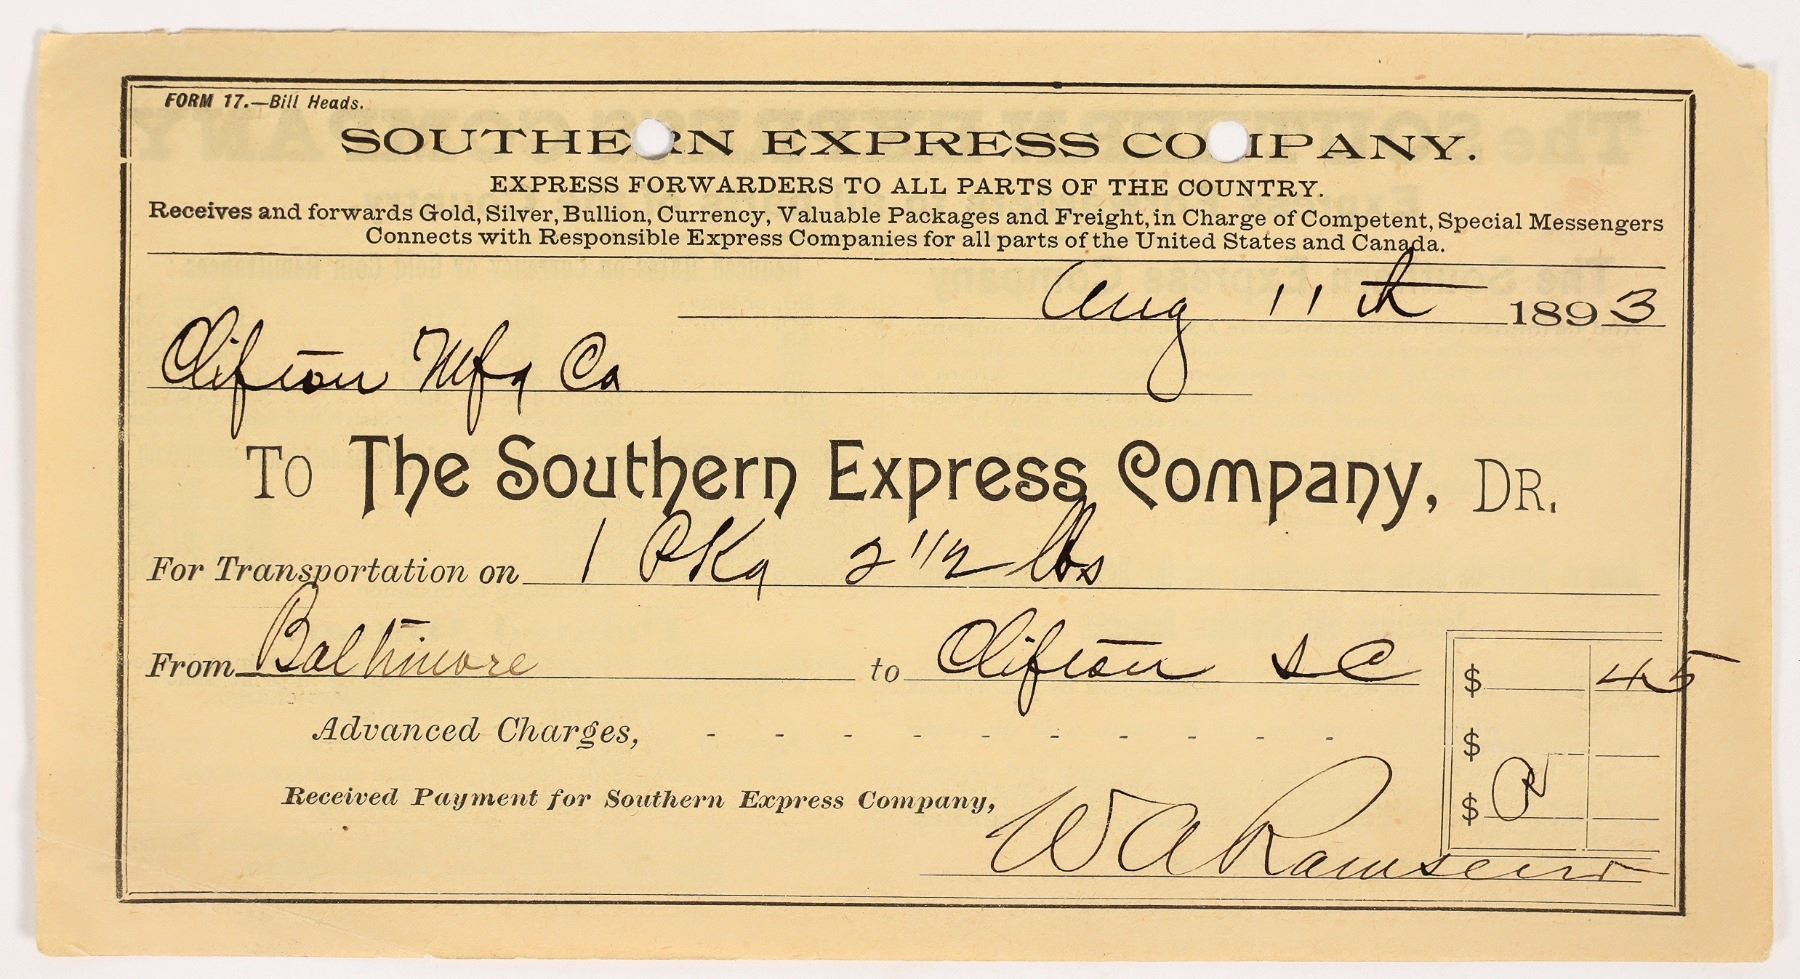 FORM 17.—Bill Heads.
SOUTHERN EXPRESS COMPANY.
EXPRESS FORWARDERS TO ALL PARTS OF THE COUNTRY.
Receives and forwards Gold, Silver, Bullion, Currency, Valuable Packages and Freight, in Charge of Competent, Special Messengers
Connects with Responsible Express Companies for all parts of the United States and Canada.
Aug 11th 1893
Clifton Mfg Co
To The Southern Express Company, DR.
For Transportation on 1 Pkg 2 1/2 lbs
From Baltimore to Clifton SC $ 45
Advanced Charges, - - - - - - - - - - $
Received Payment for Southern Express Company, $
W A